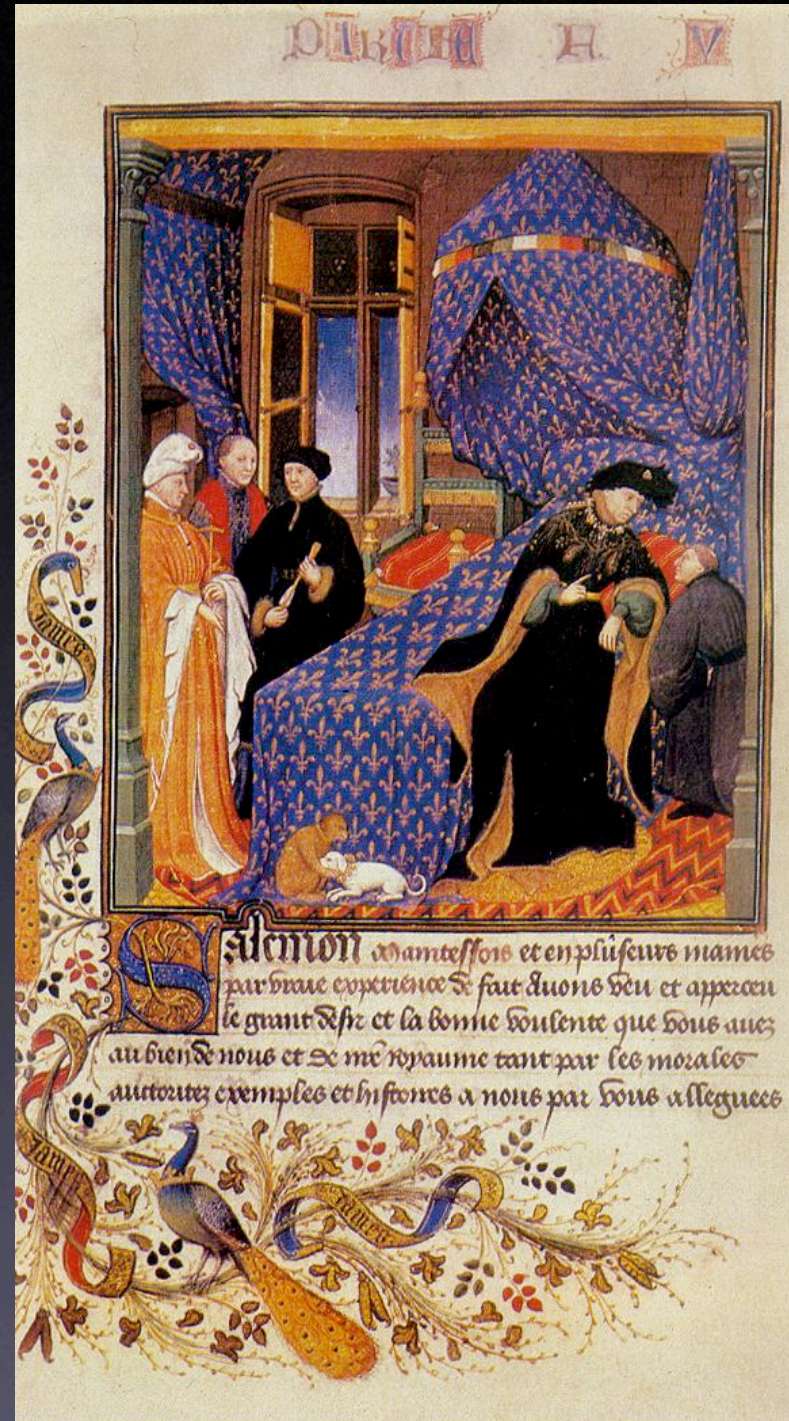 james
Salemon Maintesffois et en pluseurs manies
par vraie experience de fait Auons veu et apperceu
le grant desir et la bonne voulente que vous auez
au bien de nous et de nre royaume tant par les morales
auctoritez exemples et histoires a nous par vous alleguees
james
james